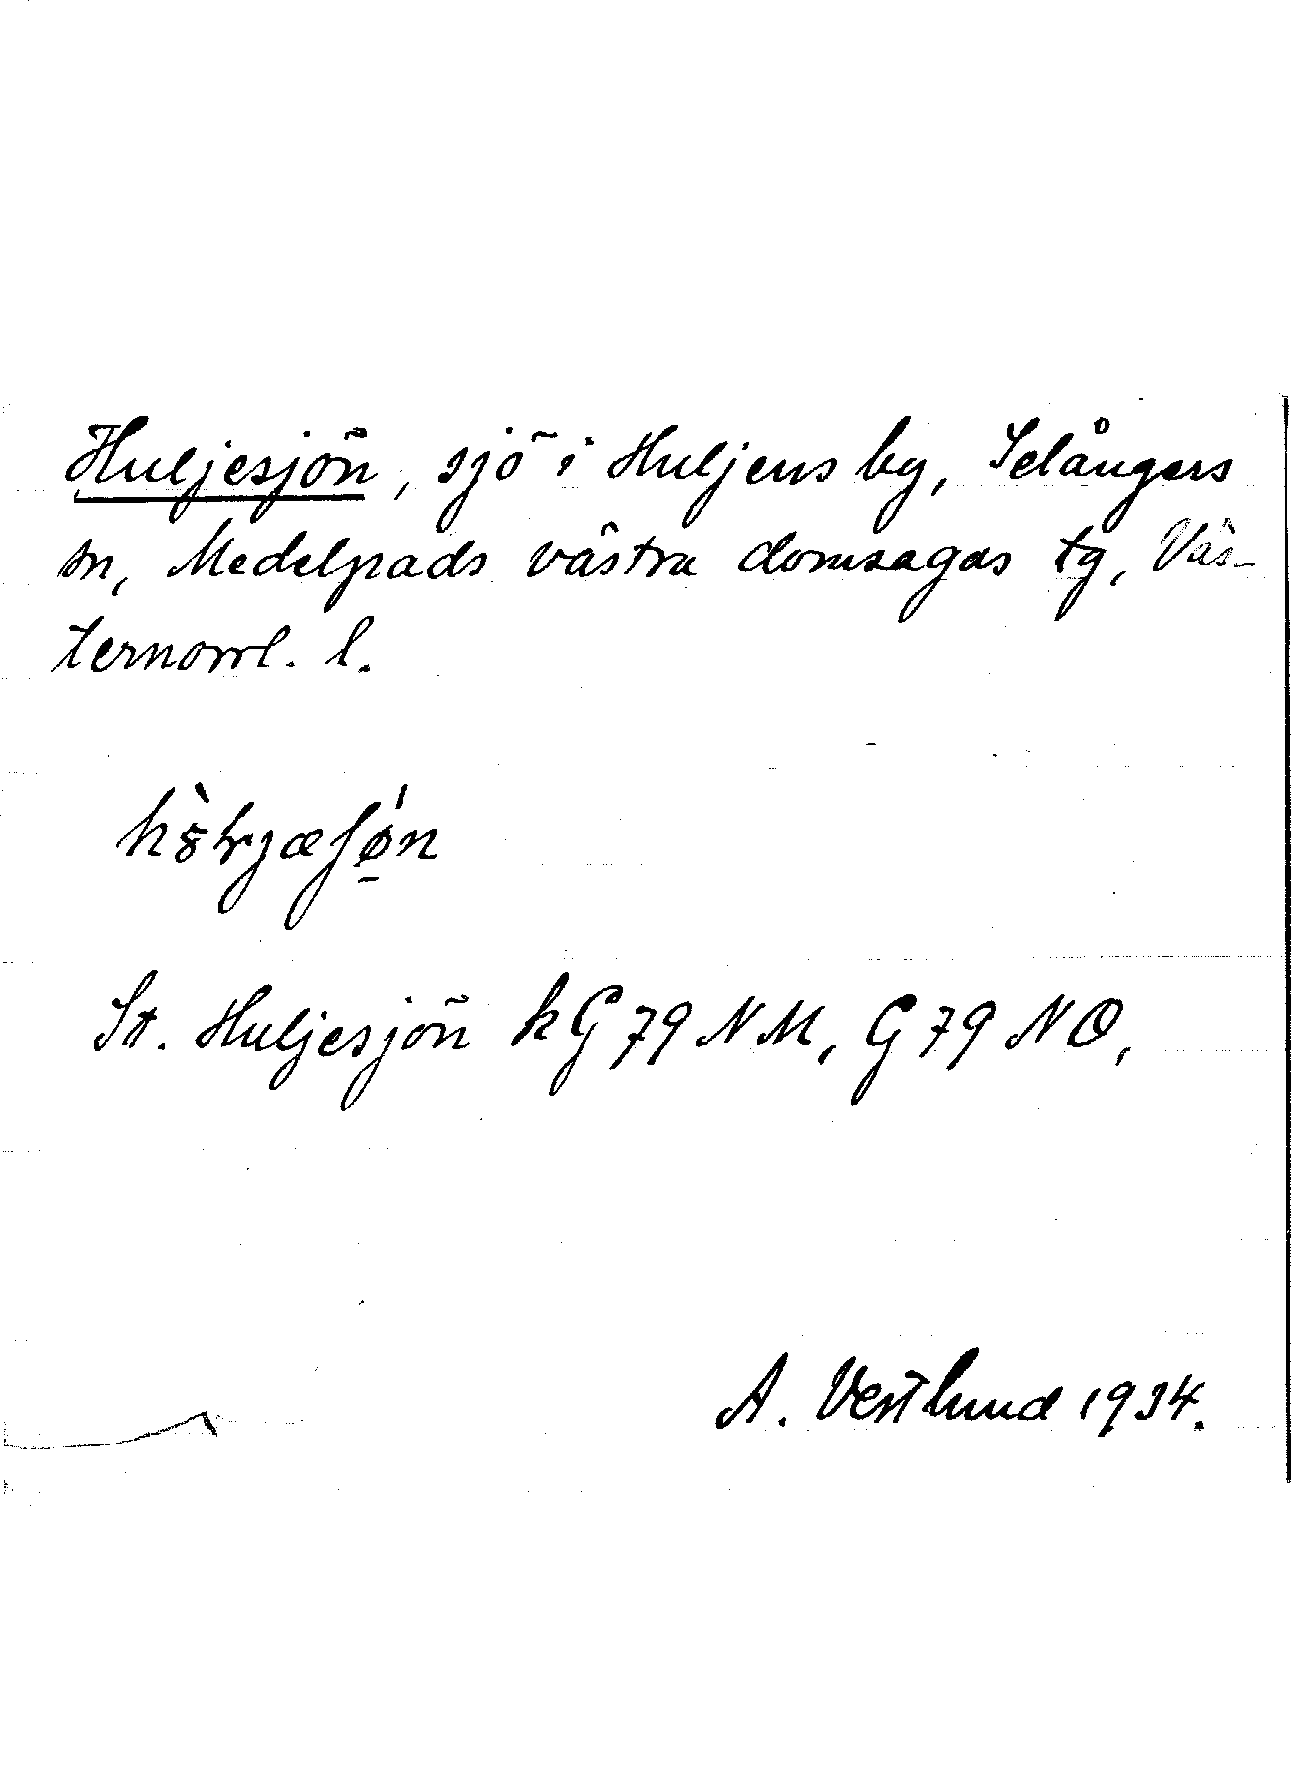 Huljesjön, sjö i Huljens by, Selångers
sn, Medelpads västra domsagas tg, Väs-
ternorrl. l.
St. Huljesjön kG 79 NM, G 79 NO,
A. Vestlund 1934.